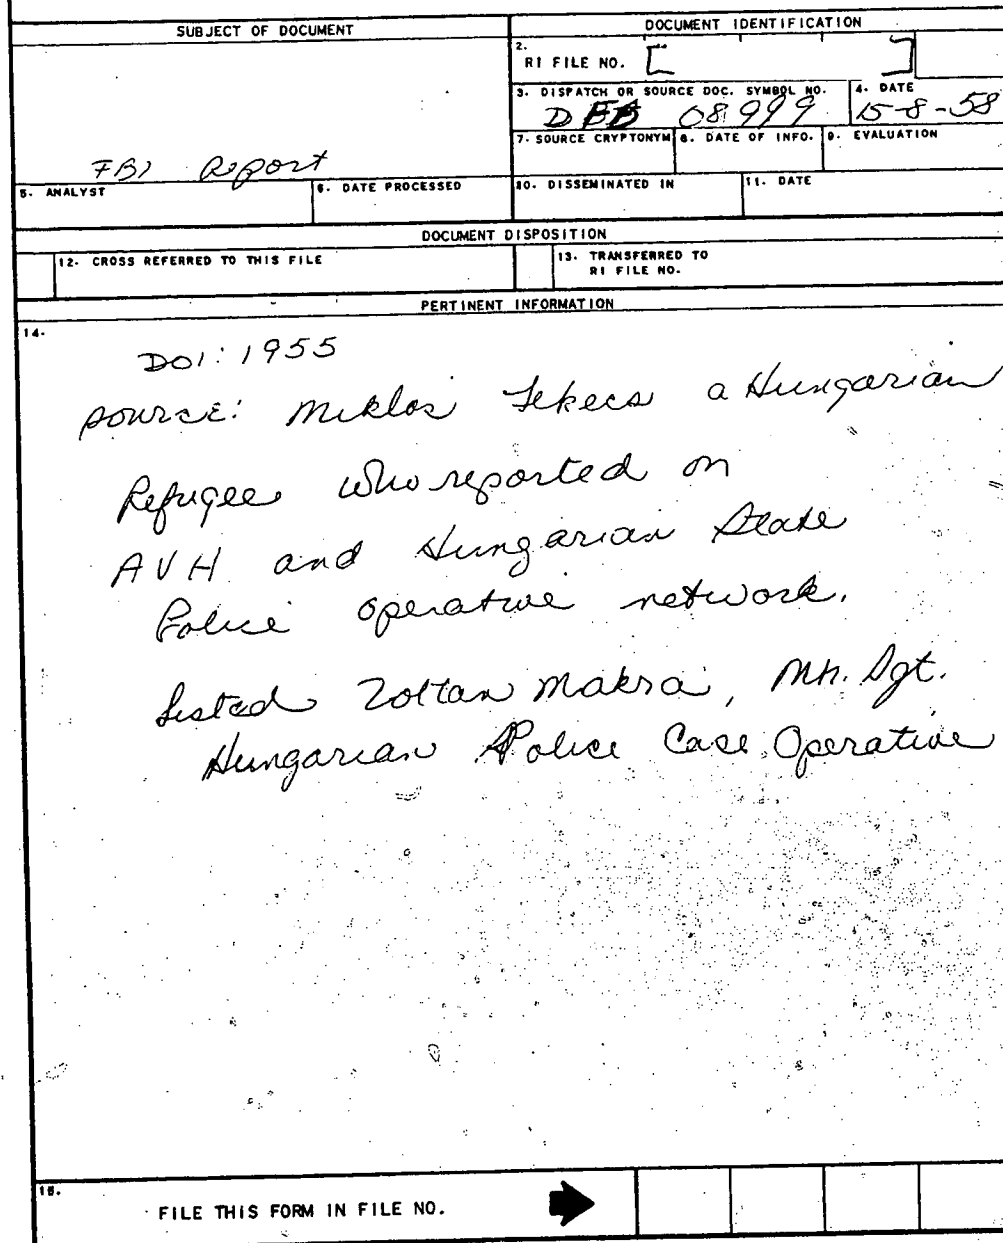 SUBJECT OF DOCUMENT
DOCUMENT IDENTIFICATION
FBI Report
2. RI FILE NO. [ ]
3. DISPATCH OR SOURCE DOC. SYMBOL NO.
08999
4. DATE
15-8-58
7. SOURCE CRYPTONYM
8. DATE OF INFO.
9. EVALUATION
5. ANALYST
6. DATE PROCESSED
10. DISSEMINATED IN
11. DATE
DOCUMENT DISPOSITION
12. CROSS REFERRED TO THIS FILE
13. TRANSFERRED TO
RI FILE NO.
PERTINENT INFORMATION
14.
DOI: 1955
source: Miklos a Hungarian
Refugee who reported on
AVH and Hungarian State
Police operative network.
Listed Zoltan Makra, Sgt.
Hungarian Police Case Operative
15.
FILE THIS FORM IN FILE NO.